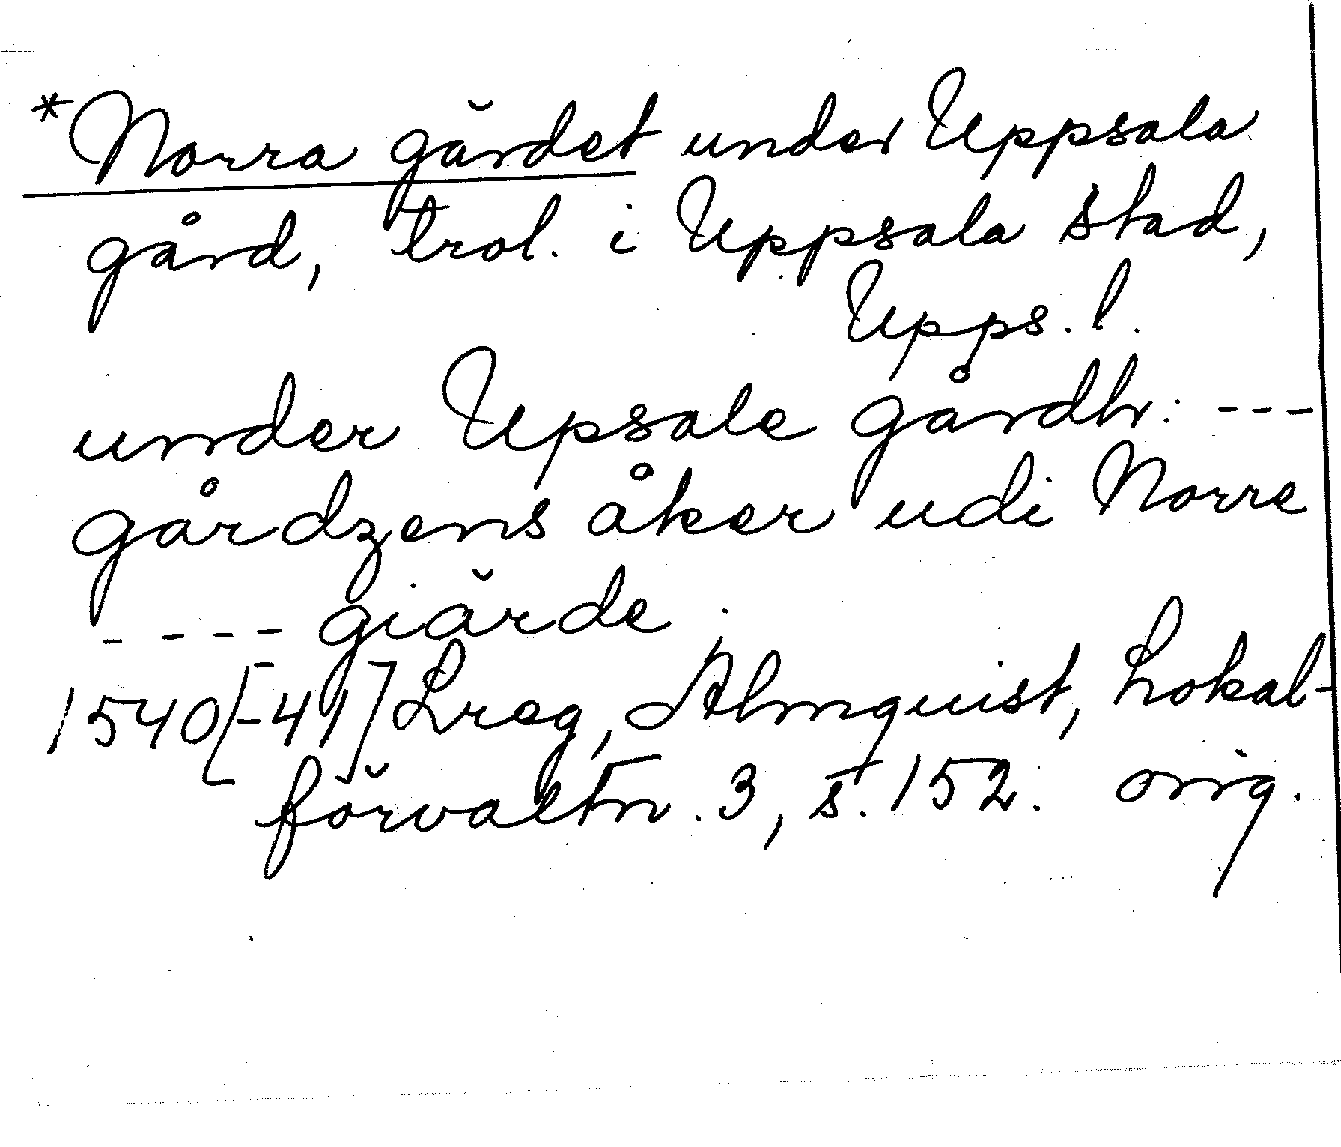 *Norra gärdet under Uppsala
gård, trol. i Uppsala stad,
Upps. l.
under Upsale gårdh: ---
gårdzens åker udi Norre
---- giärde.
1540[-41] Lreg, Almquist, Lokal-
förvaltn. 3, s. 152. orig.